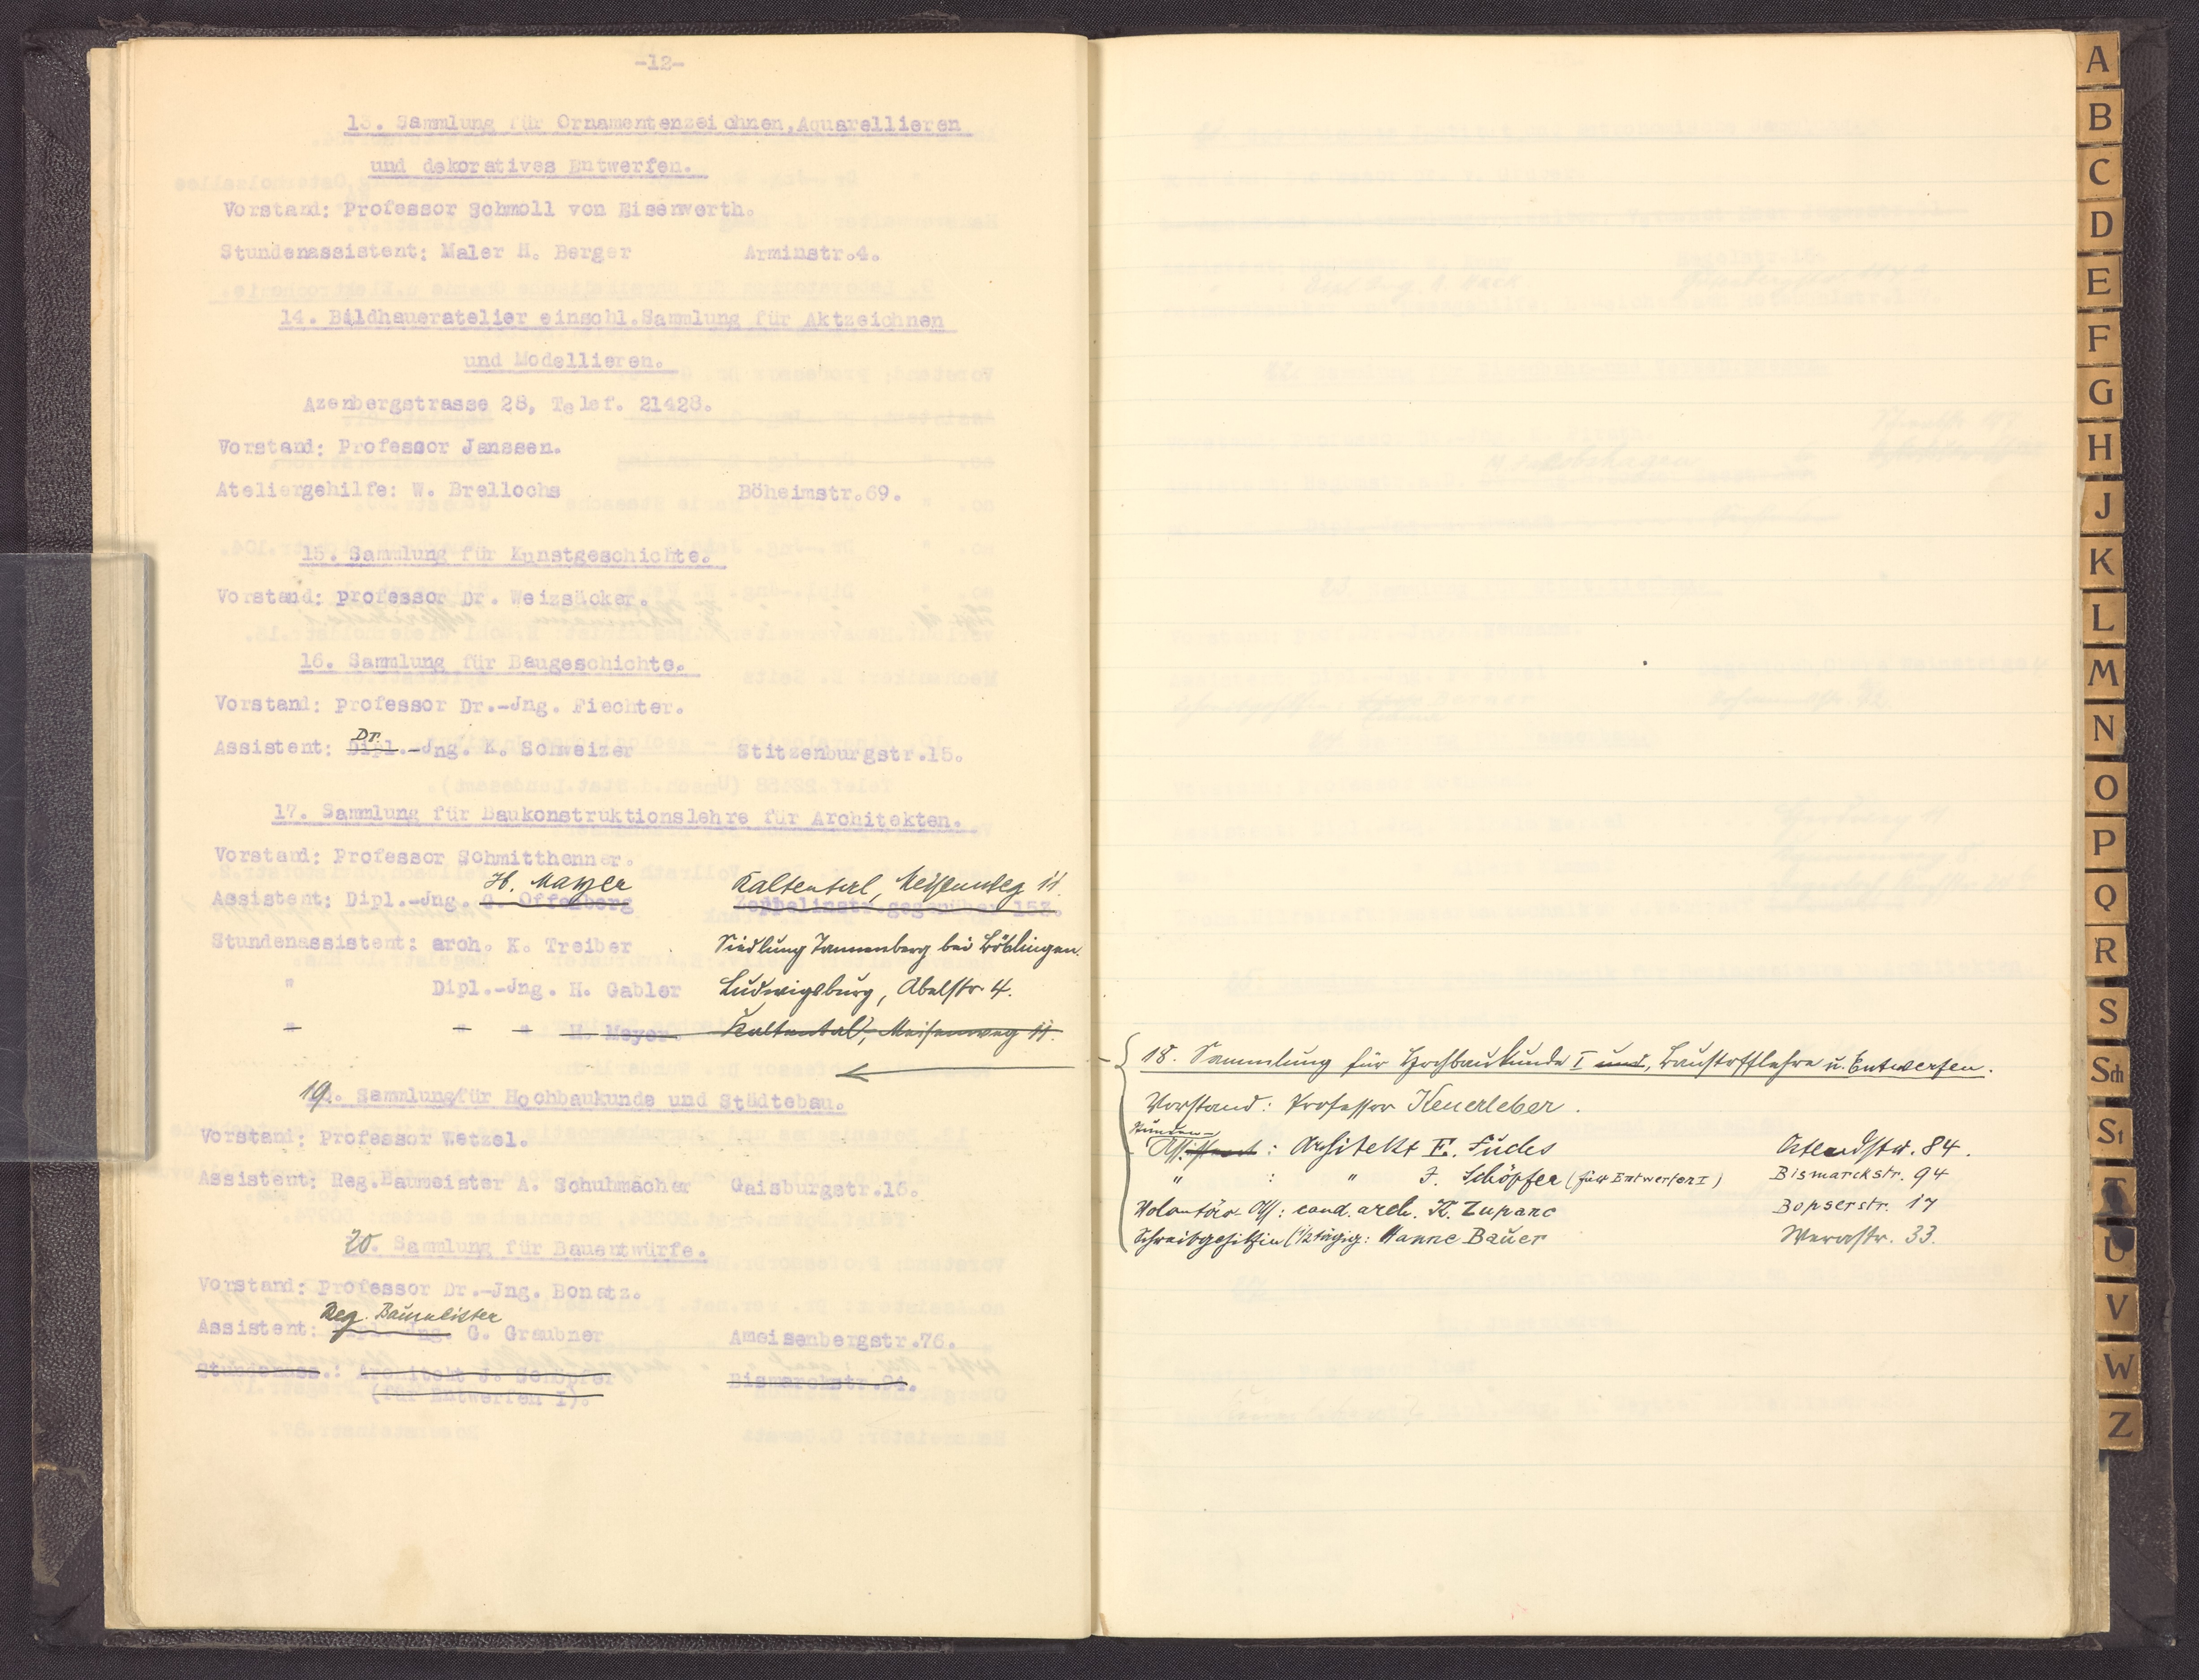 -12-
13. Sammlung für Ornamentenzeichnen, Aquarellieren
und dekoratives Entwerfen.
Vorstand: Professor Schmoll von Eisenwerth.
Stundenassistent: Maler H. Berger Arminstr.4.
14. Bildhaueratelier einschl.Sammlung für Aktzeichnen
und Modellieren.
Azenbergstrasse 28, Telef. 21428.
Vorstand: Professor Janssen.
Ateliergehilfe: W. Brellochs Böheimstr.69.
15. Sammlung für Kunstgeschichte.
Vorstand: professor Dr. Weizsäcker.
16. Sammlung für Baugeschichte.
Vorstand: professor Dr.-Jng. Fiechter.
Dr.
Assistent: Dipl.-Jng. K. Schweizer Stitzenburgstr.15.
17. Sammlung für Baukonstruktionslehre für Architekten.
Vorstand: Professor Schmitthenner.
H. Mayer Kaltental, Meisenweg 11.
Assistent: Dipl.-Jng. G. Offenberg Zeppelinstr.gegenüber 153.
Stundenassistent: arch. K. Treiber Siedlung Tannenberg bei Böblingen.
" Dipl.-Jng. H. Gabler Ludwigsburg, Abelstr. 4.
" " " H. Meyer. Kaltental, Meisenweg 11.
19. Sammlung für Hochbaukunde und Städtebau.
Vorstand: Professor Wetzel.
Assistent: Reg.Baumeister A. Schuhmacher Gaisburgstr.16.
20. Sammlung für Bauentwürfe.
Vorstand: Professor Dr.-Jng. Bonatz.
Reg. Baumeister
Assistent: Dipl.-Jng. G. Graubner Ameisenbergstr.76.
Stundenass.: Architekt J. Schöpfer Bismarckstr.94.
(für Entwerfen I).
18. Sammlung für Hochbaukunde I und, Baustofflehre u. Entwerfen.
Vorstand: Professor Keuerleber.
Stunden-
Assistent: Architekt E. Fuchs Ostendstr. 84.
" : " J. Schöpfer (für Entwerfen I) Bismarckstr. 94
Volontär Ass: cand. arch. K. Zupanc Bopserstr. 17
Schreibgehilfin (1/2 tägig: Hanne Bauer Werastr. 33.
A
B
C
D
E
F
G
H
J
K
L
M
N
O
P
Q
R
S
Sch
St
T
U
V
W
Z